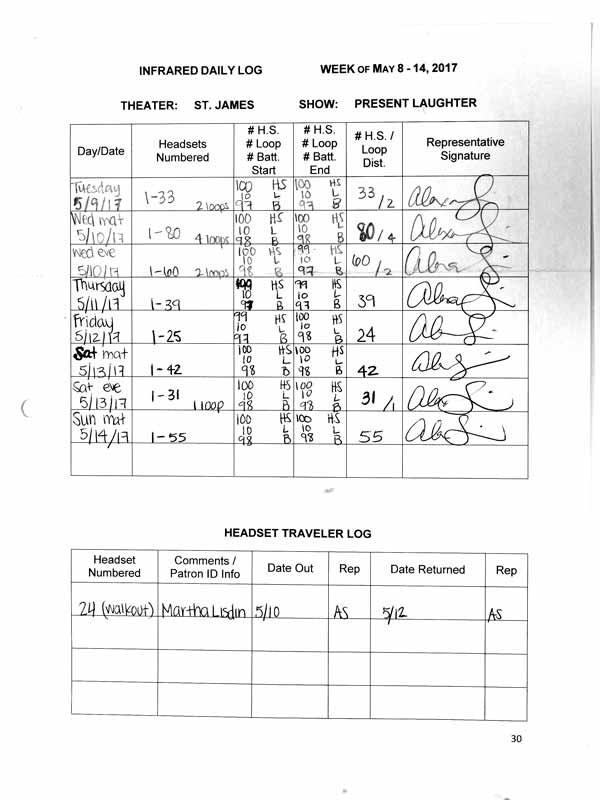 INFRARED DAILY LOG WEEK OF MAY 8 - 14, 2017
THEATER: ST. JAMES SHOW: PRESENT LAUGHTER
Day/Date Headsets Numbered # H.S. # Loop # Batt. Start # H.S. # Loop # Batt. End # H.S. / Loop Dist. Representative Signature
Tuesday 5/9/17 1-33 2 loops 100 HS 10 L 97 B 100 HS 10 L 97 B 33/2
Wed mat 5/10/17 1-80 4 loops 100 HS 10 L 98 B 100 HS 10 L 98 B 80/4
Wed eve 5/10/17 1-60 2 loops 100 HS 10 L 98 B 99 HS 10 L 97 B 60/2
Thursday 5/11/17 1-39 HS 10 L 97 B 99 HS 10 L 97 B 39
Friday 5/12/17 1-25 99 HS 10 L 97 B 100 HS 10 L 98 B 24
Sat mat 5/13/17 1-42 100 HS 10 L 98 B 100 HS 10 L 98 B 42
Sat eve 5/13/17 1-31 1 loop 100 HS 10 L 98 B 100 HS 10 L 98 B 31/1
Sun mat 5/14/17 1-55 100 HS 10 L 98 B 100 HS 10 L 98 B 55
HEADSET TRAVELER LOG
Headset Numbered Comments / Patron ID Info Date Out Rep Date Returned Rep
24 (walkout) Martha Lisdin 5/10 AS 5/12 AS
30